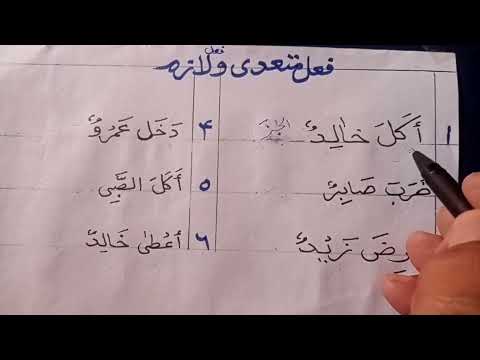 فعل متعدی و فعل لازم
١ أَكَلَ خٰالِدٌ
۴ دَخَلَ عَمْرُوٌ
ضَرَبَ صَابِرٌ
۵ أَكَلَ الصَّبِي
زَيْدٌ
٦ أَعْطىٰ خَالِدٌ